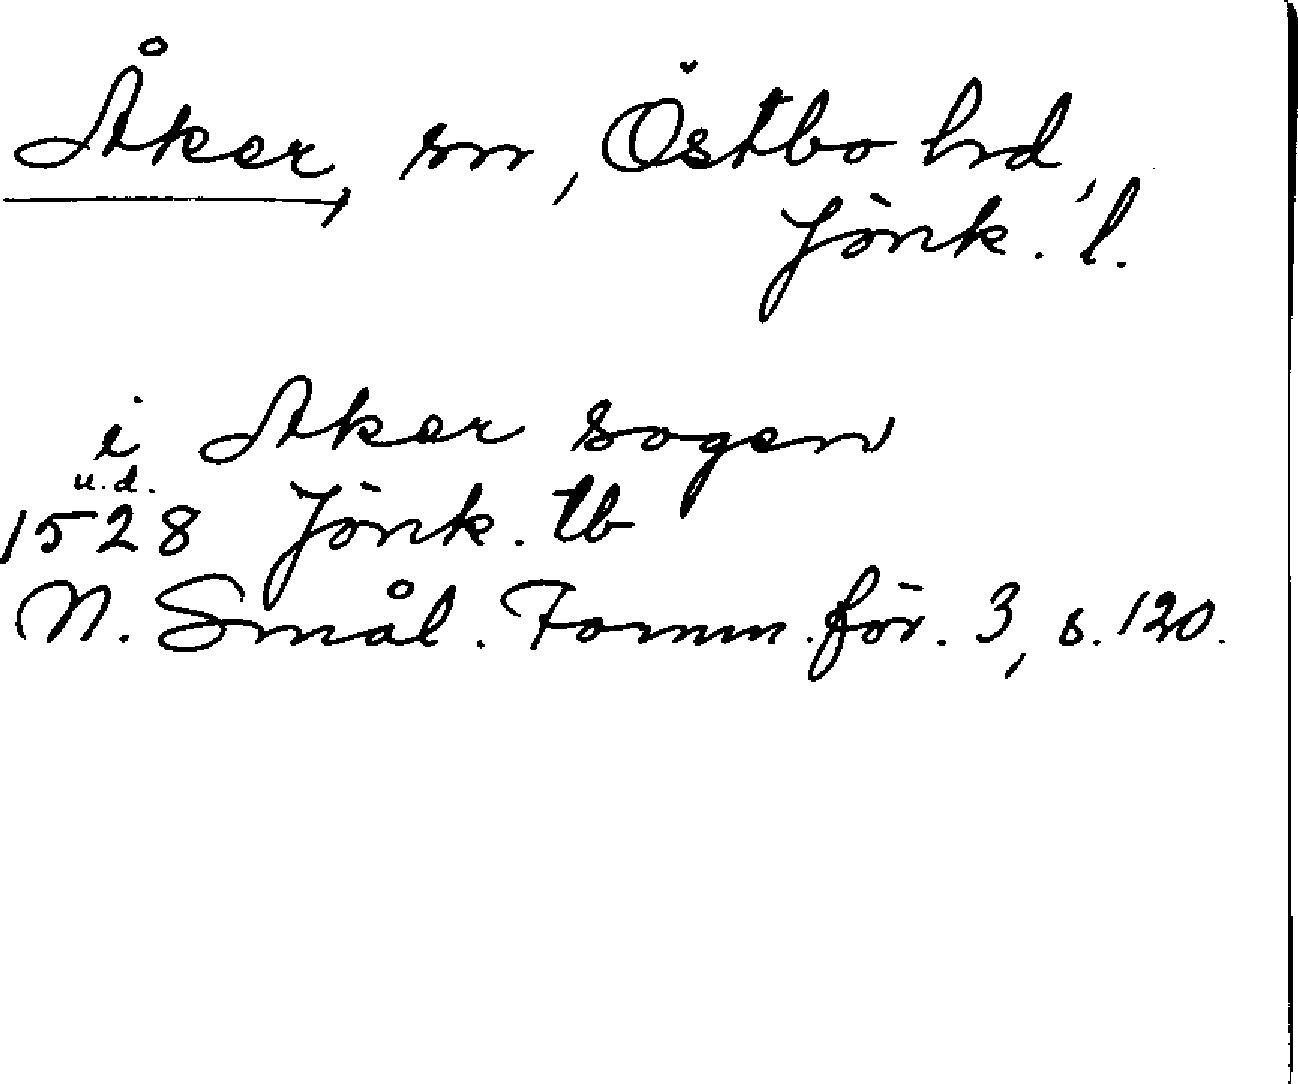 Åker, sn, Östbo hd,
Jönk. l.
i Aker sogen
u.d.
1528 Jönk. tb
N. Smål. Fornm. för. 3, s. 120.